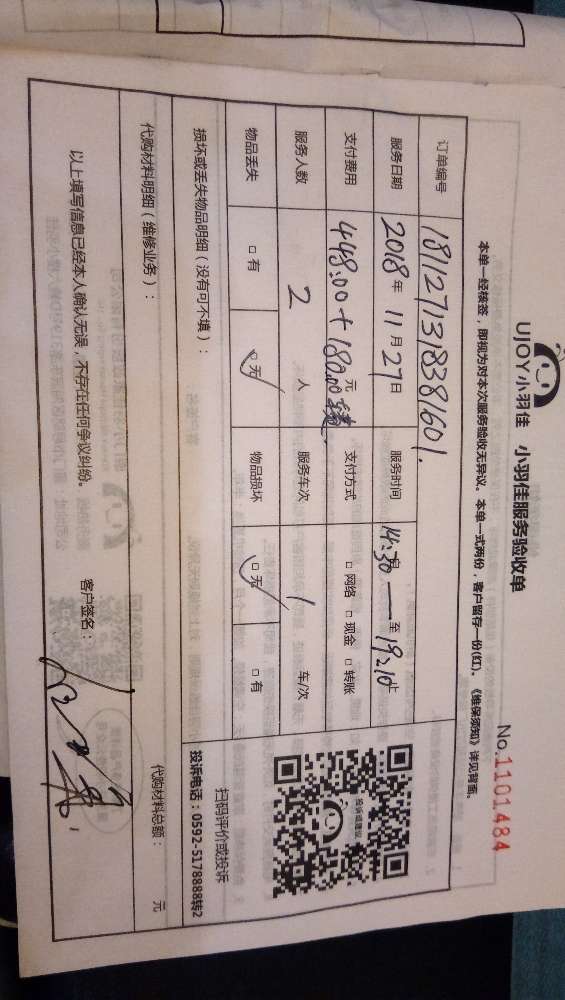 UJOY小羽佳 小羽佳服务验收单
No.1101484
本单一经核签，即视为对本次服务验收无异议。本单一式两份，客户留存一份(红)。《维保须知》详见背面。
订单编号 1811271318381601.
服务日期 2018年 11月27日 服务时间 14:30 — 至 19:10止
支付费用 448.00+180.00元 支付方式 □ 网络 □ 现金 □ 转账
服务人数 2 人 服务车次 1 车/次
物品丢失 □ 有 □ 无 物品损坏 □ 无 □ 有
投诉或建议
扫码评价或投诉
投诉电话：0592-5178888转2
损坏或丢失物品明细（没有可不填）：
代购材料明细（维修业务）： 代购材料总额： 元
以上填写信息已经本人确认无误，不存在任何争议纠纷。 客户签名：